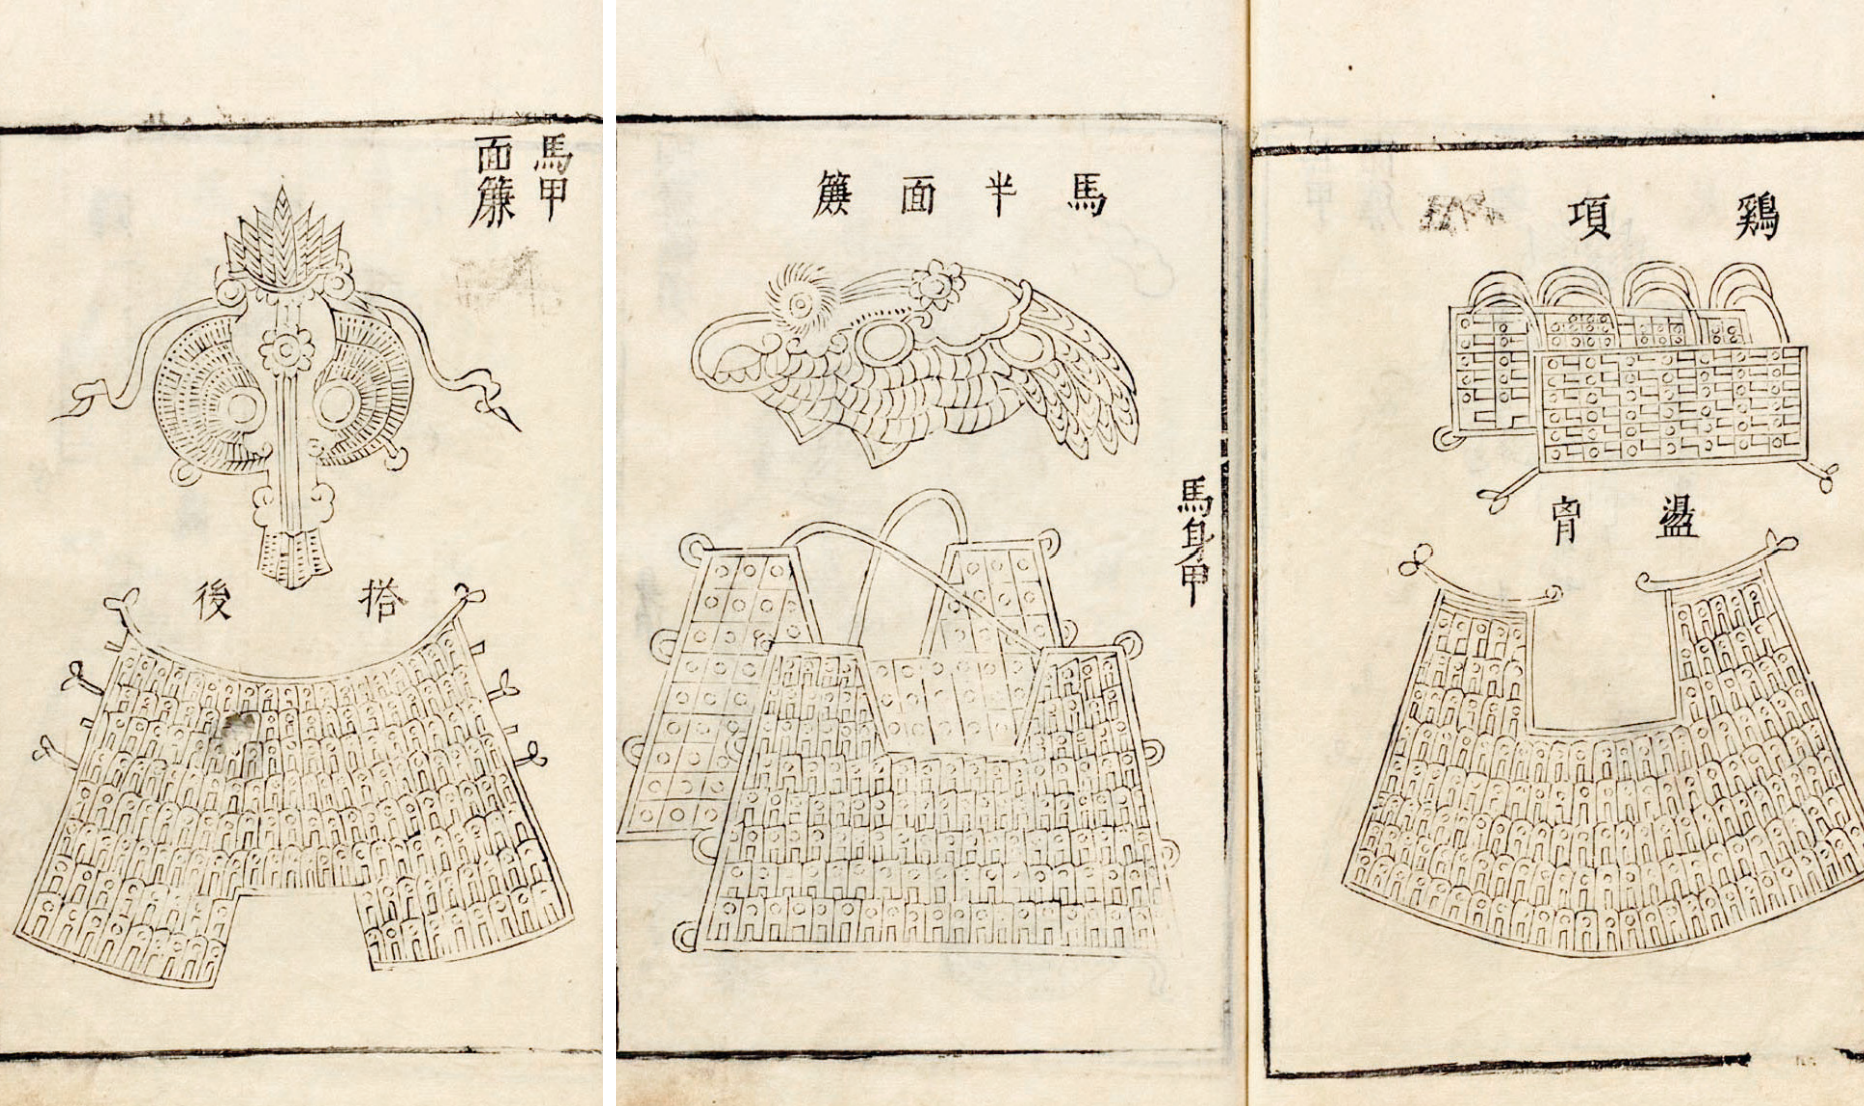 馬甲
面簾
搭後
馬半面簾
馬身甲
鷄項
盪胷